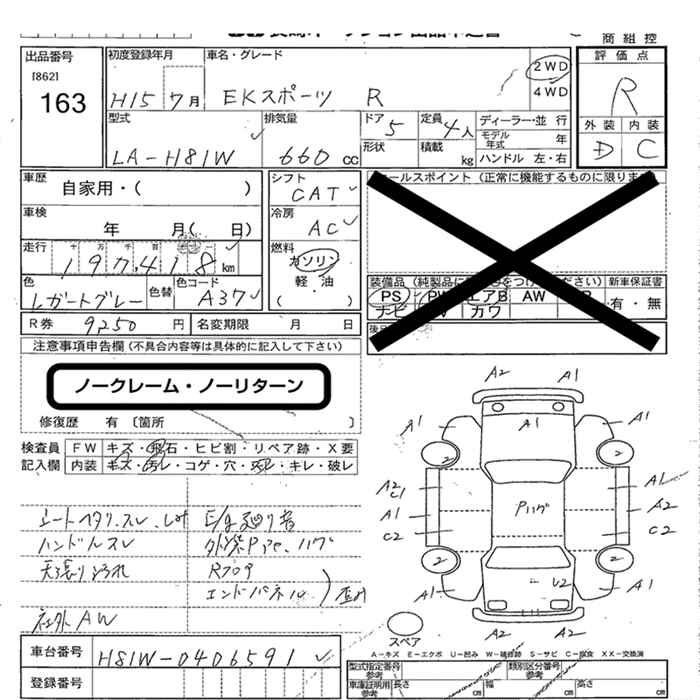 商 組 控
出品番号
[862]
163
初度登録年月
H15 7月
車名・グレード
EKスポーツ R
2WD
4WD
評 価 点
R
外 装 内 装
D C
型式
LA-H81W
排気量
660 cc
ドア 5
形状
定員 4人
積載 kg
ディーラー・並 行
モデル年式 年
ハンドル 左・右
車歴 自家用・( )
車検 年 月( 日)
走行 197,418 km
色 レガートグレー
色替
色コード A37
シフト CAT
冷房 AC
燃料 ガソリン
軽 油
( )
セールスポイント (正常に機能するものに限ります)
装備品
新車保証書
PS PW エアB AW
ナビ カワ
有・無
R券 9250 円
名変期限 月 日
注意事項申告欄 (不具合内容等は具体的に記入して下さい)
ノークレーム・ノーリターン
修復歴 有 〔箇所 〕
検査員 FW キズ・飛石・ヒビ割・リペア跡・X要
記入欄 内装 キズ・汚レ・コゲ・穴・スレ・キレ・破レ
シートヘタリ、スレ
E/g廻り音
ハンドルスレ
天張り汚れ
エンドパネル
社外AW
車台番号 H81W-0406591
登録番号
A2 A1
A1 A1 A1
2 2
A2 C1 A1
A1 A2
C2 C2
2 2
A1 U2 A1
A2 A2
スペア
A-キズ E-エクボ U-凹み W-補修跡 S-サビ C-腐食 XX-交換済
型式指定番号 参考
類別区分番号 参考
車庫証明用 参考
長さ cm
幅 cm
高さ cm